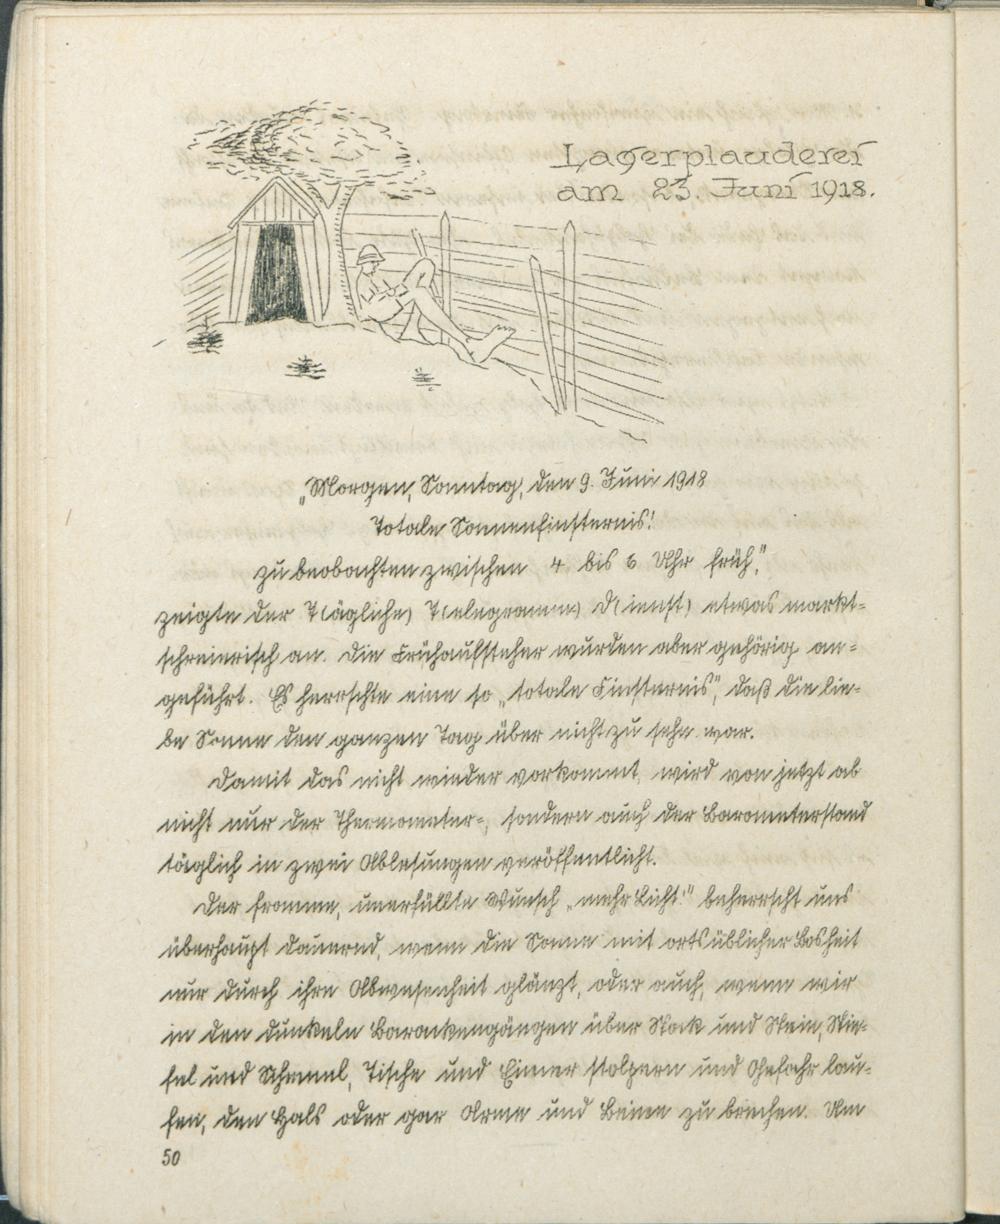 Lagerplauderei
am 23. Juni 1918.
„Morgen, Sonntag, den 9. Juni 1918
Totale Sonnenfinsternis!
zu beobachten zwischen 4 bis 6 Uhr früh,"
zeigte der T(ägliche) T(elegramm) D(ienst) etwas markt-
schreierisch an. Die Frühaufsteher wurden aber gehörig an-
geführt. Es herrschte eine so „totale Finsternis", daß die lie-
be Sonne den ganzen Tag über nicht zu sehn war.
Damit das nicht wieder vorkommt, wird von jetzt ab
nicht nur der Thermometer-, sondern auch der Barometerstand
täglich in zwei Ablesungen veröffentlicht.
Der fromme, unerfüllte Wunsch „mehr Licht!" beherrscht uns
überhaupt dauernd, wenn die Sonne mit ortsüblicher Bosheit
nur durch ihre Abwesenheit glänzt, oder auch, wenn wir
in den dunkeln Barackengängen über Stock und Stein, Stie-
fel und Schemel, Tische und Eimer stolpern und Gefahr lau-
fen, den Hals oder gar Arme und Beine zu brechen. Um
50